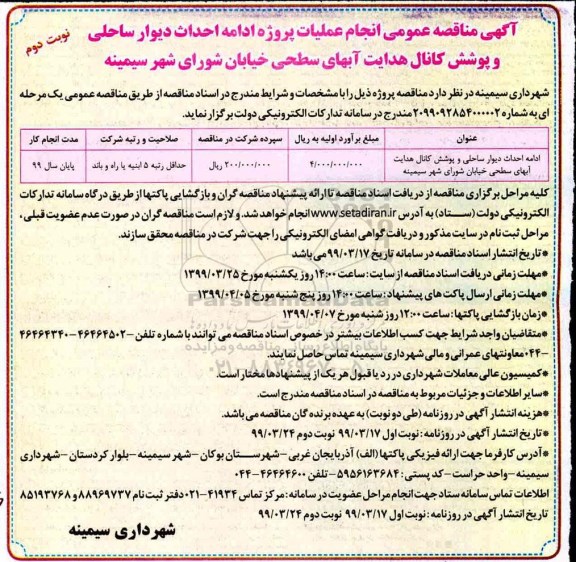 آگهی مناقصه عمومی انجام عملیات پروژه ادامه احداث دیوار ساحلی
و پوشش کانال هدایت آبهای سطحی خیابان شورای شهر سیمینه
نوبت دوم
شهرداری سیمینه در نظر دارد مناقصه پروژه ذیل را با مشخصات و شرایط مندرج در اسناد مناقصه از طریق مناقصه عمومی یک مرحله
ای به شماره ۲۰۹۹۰۹۲۸۵۴۰۰۰۰۰۲ مندرج در سامانه تدارکات الکترونیکی دولت برگزار نماید.
عنوان | مبلغ برآورد اولیه به ریال | سپرده شرکت در مناقصه | صلاحیت و رتبه شرکت | مدت انجام کار
ادامه احداث دیوار ساحلی و پوشش کانال هدایت آبهای سطحی خیابان شورای شهر سیمینه | ۴/۰۰۰/۰۰۰/۰۰۰ | ۲۰۰/۰۰۰/۰۰۰ ریال | حداقل رتبه ۵ ابنیه یا راه و باند | پایان سال ۹۹
کلیه مراحل برگزاری مناقصه از دریافت اسناد مناقصه تا ارائه پیشنهاد مناقصه گران و بازگشایی پاکتها از طریق درگاه سامانه تدارکات
الکترونیکی دولت (ستاد) به آدرس www.setadiran.ir انجام خواهد شد. و لازم است مناقصه گران در صورت عدم عضویت قبلی،
مراحل ثبت نام در سایت مذکور و دریافت گواهی امضای الکترونیکی را جهت شرکت در مناقصه محقق سازند.
*تاریخ انتشار اسناد مناقصه در سامانه تاریخ ۹۹/۰۳/۱۷ می باشد
*مهلت زمانی دریافت اسناد مناقصه از سایت: ساعت ۱۴:۰۰ روز یکشنبه مورخ ۱۳۹۹/۰۳/۲۵
*مهلت زمانی ارسال پاکت های پیشنهاد: ساعت ۱۴:۰۰ روز پنج شنبه مورخ ۱۳۹۹/۰۴/۰۵
*زمان بازگشایی پاکتها: ساعت ۱۲:۰۰ روز شنبه مورخ ۱۳۹۹/۰۴/۰۷
*متقاضیان واجد شرایط جهت کسب اطلاعات بیشتر در خصوص اسناد مناقصه می توانند با شماره تلفن ۴۶۴۶۴۵۰۲-۴۶۴۶۴۳۴۰
-۰۴۴ معاونتهای عمرانی و مالی شهرداری سیمینه تماس حاصل نمایند.
*کمیسیون عالی معاملات شهرداری در رد یا قبول هر یک از پیشنهادها مختار است.
*سایر اطلاعات و جزئیات مربوط به مناقصه در اسناد مناقصه مندرج است.
*هزینه انتشار آگهی در روزنامه (طی دو نوبت) به عهده برنده گان مناقصه می باشد.
*تاریخ انتشار آگهی در روزنامه: نوبت اول ۹۹/۰۳/۱۷ نوبت دوم ۹۹/۰۳/۲۴
*آدرس کارفرما جهت ارائه فیزیکی پاکتها (الف) آذربایجان غربی-شهرستان بوکان-شهر سیمینه-بلوار کردستان-شهرداری
سیمینه-واحد حراست-کد پستی: ۵۹۵۶۱۶۳۶۸۴-تلفن ۴۶۴۶۴۶۰۰-۰۴۴
اطلاعات تماس سامانه ستاد جهت انجام مراحل عضویت در سامانه: مرکز تماس ۴۱۹۳۴-۰۲۱ دفتر ثبت نام ۸۸۹۶۹۷۳۷ و ۸۵۱۹۳۷۶۸
تاریخ انتشار آگهی در روزنامه: نوبت اول ۹۹/۰۳/۱۷ نوبت دوم ۹۹/۰۳/۲۴
شهرداری سیمینه